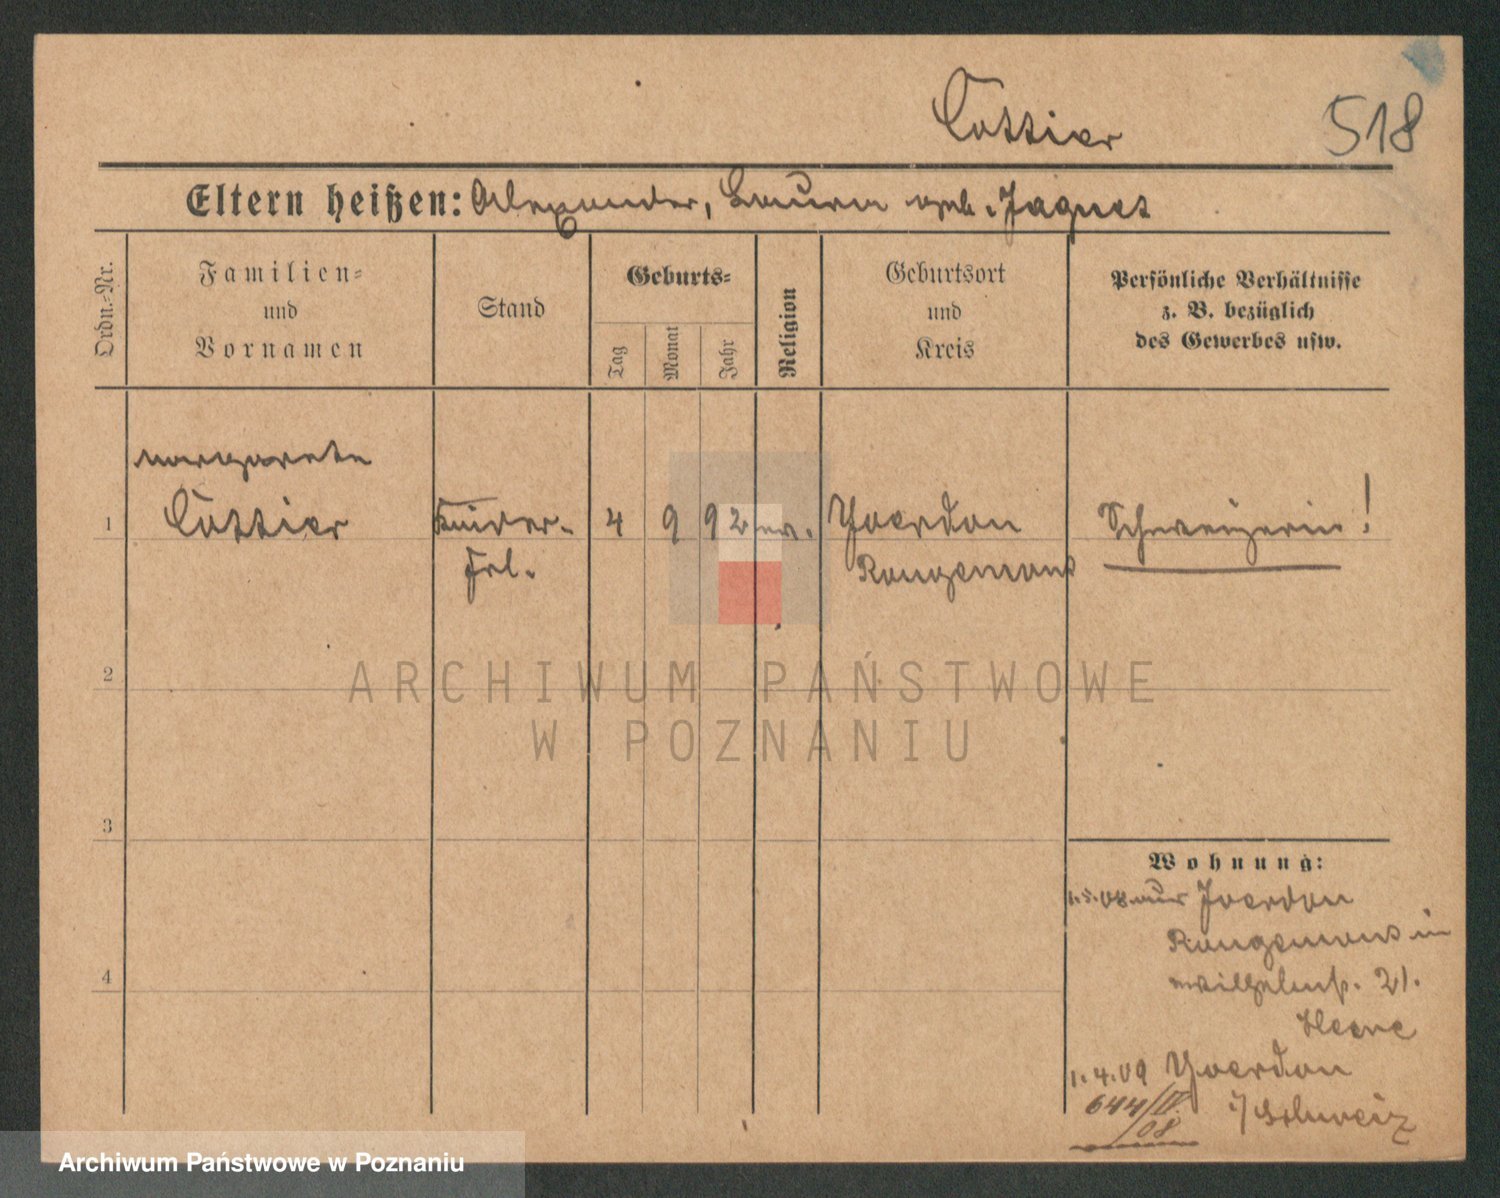 Cottier
518
Eltern heißen: Alexander, Laura geb. Jaques
Ordn.-Nr.
Familien-
und
Vornamen
Stand
Geburts-
Tag
Monat
Jahr
Religion
Geburtsort
und
Kreis
Persönliche Verhältnisse
z. B. bezüglich
des Gewerbes usw.
Margarete
1 Cottier Kinder- 4 9 92 ev. Yverdon Schweizerin!
Frl. Rougemont
2
ARCHIWUM PAŃSTWOWE
W POZNANIU
3
Wohnung:
1.5.08 aus Yverdon
Rougemont in
Wilhelmstr. 21.
4
1.4.09 Yverdon
644/IV. i/Schweiz
/08
Archiwum Państwowe w Poznaniu